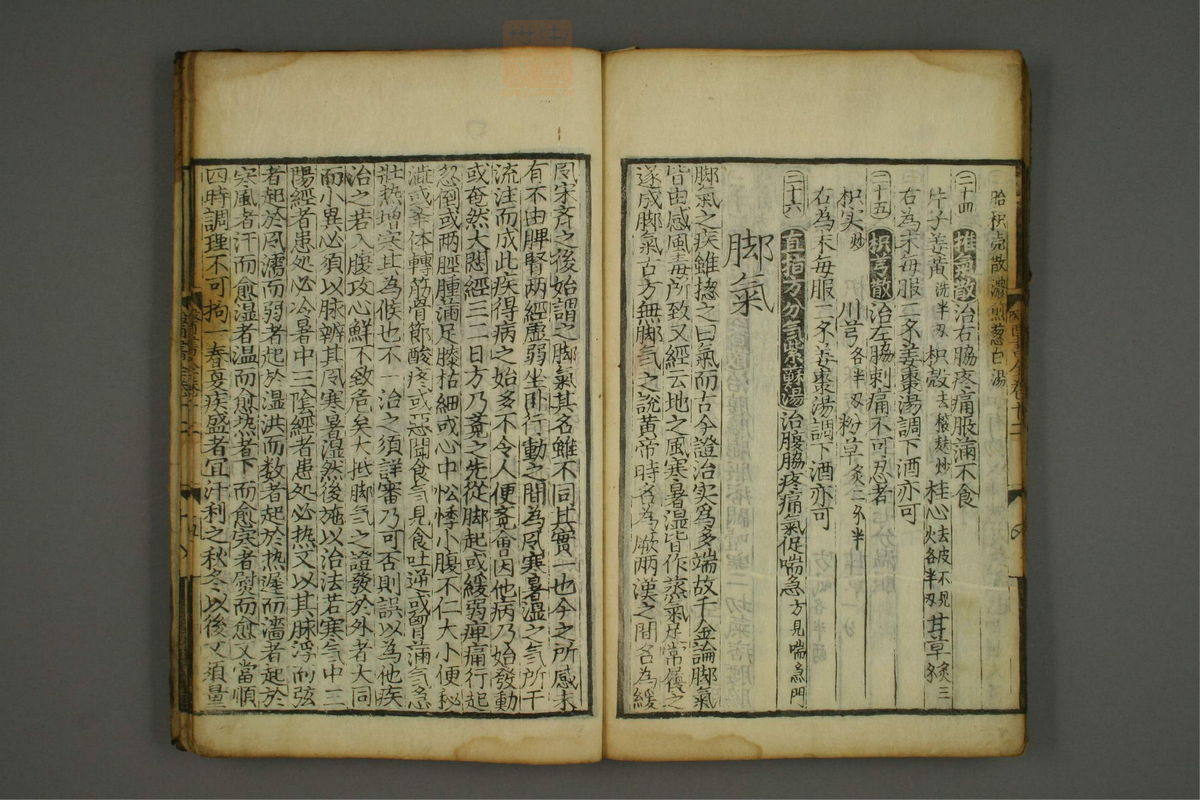 胎枳壳散濃煎葱白湯
二十四 推氣散治右脇疼痛脹滿不食
片子姜黃洗半刄枳殼去穰麩炒桂心去皮不見火各半刄甘草炙三分
右為末每服二錢姜棗湯調下酒亦可
二十五 枳芎散治左脇刺痛不可忍者
枳实炒川芎各半刄粉草炙二分半
右為末每服二錢姜棗湯調下酒亦可
二十六 直指方分气紫蘇湯治腹脇疼痛氣促喘急方見喘急門
脚氣
脚氣之疾雖揔之曰氣而古今證治实為多端故千金論脚氣
皆由感風毒所致又經云地之風寒暑湿皆作蒸氣足常履之
遂成脚氣古方無脚气之說黃帝時名為厥兩漢之間名為緩
風宋齐之後始謂之脚氣其名雖不同其實一也今之所感未
有不由脾腎两經虛弱坐卧行動之間為風寒暑湿之气所干
流注而成此疾得病之始多不令人便竟會因他病乃始發動
或奄然大悶經三二日方乃竟之先從脚起或緩弱痺痛行起
忽倒或两脛腫滿足膝枯細或心中忪悸小腹不仁大小便秘
澁或舉体轉筋骨節酸疼或惡聞食气見食吐逆或胷滿气急
壯热增寒其為候也不一治之須詳審乃可否則誤以為他疾
治之若入腹攻心鮮不致危矣大抵脚气之證發於外者大同
而小異必須以脉辨其風寒暑湿然後施以治法若寒气中三
陽經者患処必冷暑中三陰經者患処必热又以其脉浮而弦
者起於風濡而弱者起於湿洪而数者起於热遲而濇者起於
寒風者汗而愈湿者温而愈热者下而愈寒者熨而愈又當順
四時調理不可拘春夏疾盛者宜汗利之秋冬以後又須量